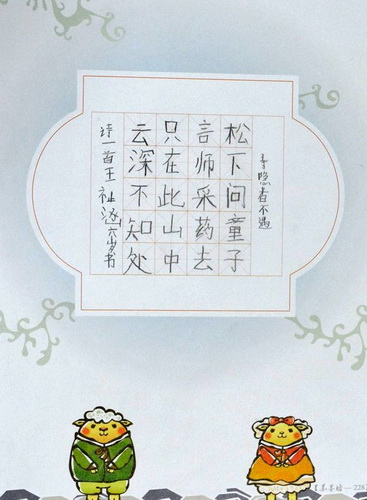 寻隐者不遇
松下问童子
言师采药去
只在此山中
云深不知处
诗一首王祉逐六岁书